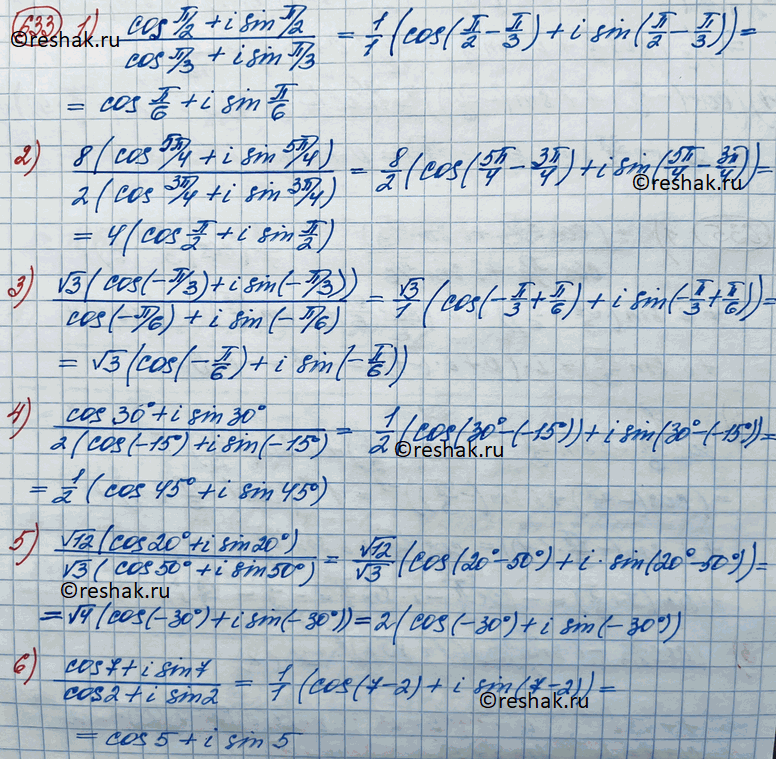 633 1) (cos π/2 + i sin π/2)/(cos π/3 + i sin π/3) = 1/1 (cos(π/2 − π/3) + i sin(π/2 − π/3)) =
©reshak.ru ©reshak.ru
= cos π/6 + i sin π/6
2) 8(cos 5π/4 + i sin 5π/4)/2(cos 3π/4 + i sin 3π/4) = 8/2 (cos(5π/4 − 3π/4) + i sin(5π/4 − 3π/4)) =
©reshak.ru
= 4(cos π/2 + i sin π/2)
3) √3(cos(−π/3) + i sin(−π/3))/(cos(−π/6) + i sin(−π/6)) = √3/1 (cos(−π/3 + π/6) + i sin(−π/3 + π/6)) =
= √3(cos(−π/6) + i sin(−π/6))
4) (cos 30° + i sin 30°)/2(cos(−15°) + i sin(−15°)) = 1/2 (cos(30° − (−15°)) + i sin(30° − (−15°)) =
©reshak.ru
= 1/2 (cos 45° + i sin 45°)
5) √12(cos 20° + i sin 20°)/√3(cos 50° + i sin 50°) = √12/√3 (cos(20° − 50°) + i · sin(20° − 50°)) =
©reshak.ru
= √4(cos(−30°) + i sin(−30°)) = 2(cos(−30°) + i sin(−30°))
6) (cos 7 + i sin 7)/(cos 2 + i sin 2) = 1/1 (cos(7−2) + i sin(7−2)) =
©reshak.ru
= cos 5 + i sin 5